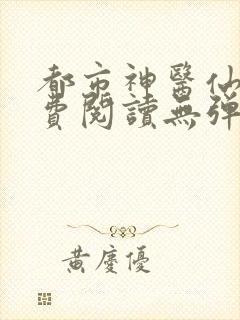 都市神醫仙
費閱讀無彈
黃慶優